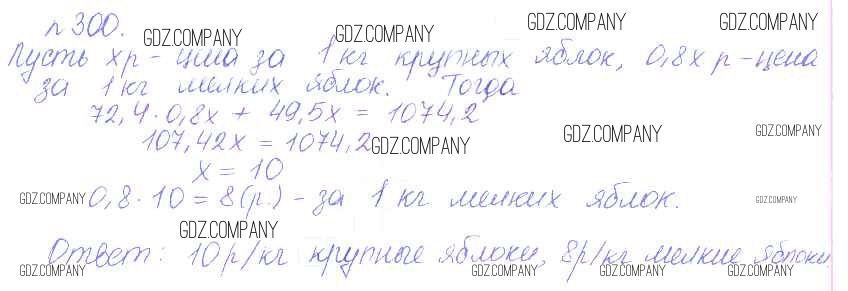 n 300.
GDZ.COMPANY GDZ.COMPANY GDZ.COMPANY GDZ.COMPANY
Пусть xр - цена за 1 кг крупных яблок, 0,8x р - цена
за 1 кг мелких яблок. Тогда
72,4 · 0,8x + 49,5x = 1074,2
107,42x = 1074,2
GDZ.COMPANY GDZ.COMPANY GDZ.COMPANY
x = 10
GDZ.COMPANY 0,8 · 10 = 8 (р.) - за 1 кг мелких яблок. GDZ.COMPANY
GDZ.COMPANY
Ответ: 10 р/кг крупные яблоки, 8 р/кг мелкие яблоки.
GDZ.COMPANY GDZ.COMPANY GDZ.COMPANY GDZ.COMPANY